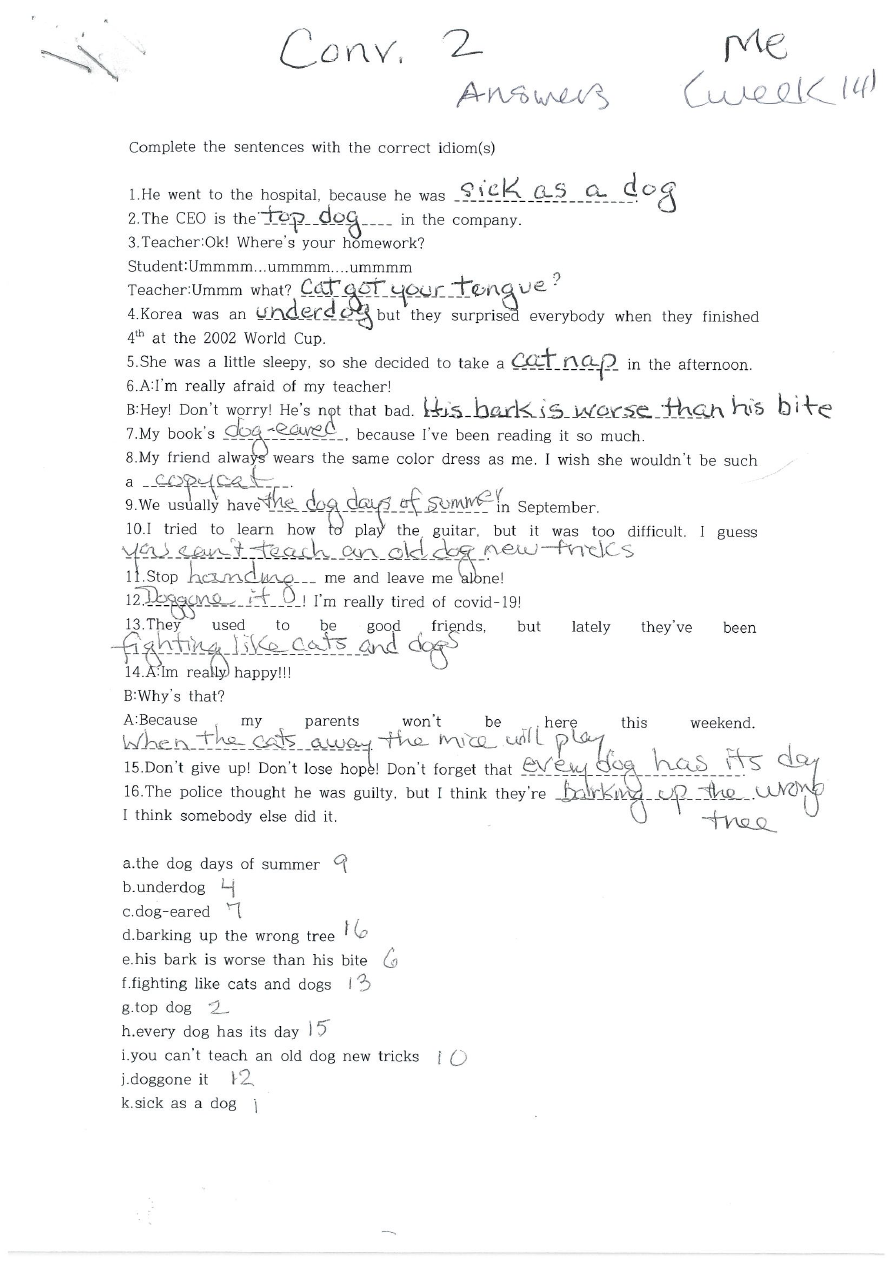 Conv. 2 Me
Answers (week 14)
Complete the sentences with the correct idiom(s)
1.He went to the hospital, because he was sick as a dog
2.The CEO is the top dog in the company.
3.Teacher:Ok! Where's your homework?
Student:Ummmm...ummmm....ummmm
Teacher:Ummm what? Cat got your tongue?
4.Korea was an underdog but they surprised everybody when they finished
4th at the 2002 World Cup.
5.She was a little sleepy, so she decided to take a cat nap in the afternoon.
6.A:I'm really afraid of my teacher!
B:Hey! Don't worry! He's not that bad. His bark is worse than his bite
7.My book's dog-eared, because I've been reading it so much.
8.My friend always wears the same color dress as me. I wish she wouldn't be such
a copycat.
9.We usually have the dog days of summer in September.
10.I tried to learn how to play the guitar, but it was too difficult. I guess
you can't teach an old dog new tricks
11.Stop me and leave me alone!
12.Doggone it! I'm really tired of covid-19!
13.They used to be good friends, but lately they've been
fighting like cats and dogs
14.A:Im really happy!!!
B:Why's that?
A:Because my parents won't be here this weekend.
When the cats away the mice will play
15.Don't give up! Don't lose hope! Don't forget that every dog has its day
16.The police thought he was guilty, but I think they're barking up the wrong
tree
I think somebody else did it.
a.the dog days of summer 9
b.underdog 4
c.dog-eared 7
d.barking up the wrong tree 16
e.his bark is worse than his bite 6
f.fighting like cats and dogs 13
g.top dog 2
h.every dog has its day 15
i.you can't teach an old dog new tricks 10
j.doggone it 12
k.sick as a dog 1